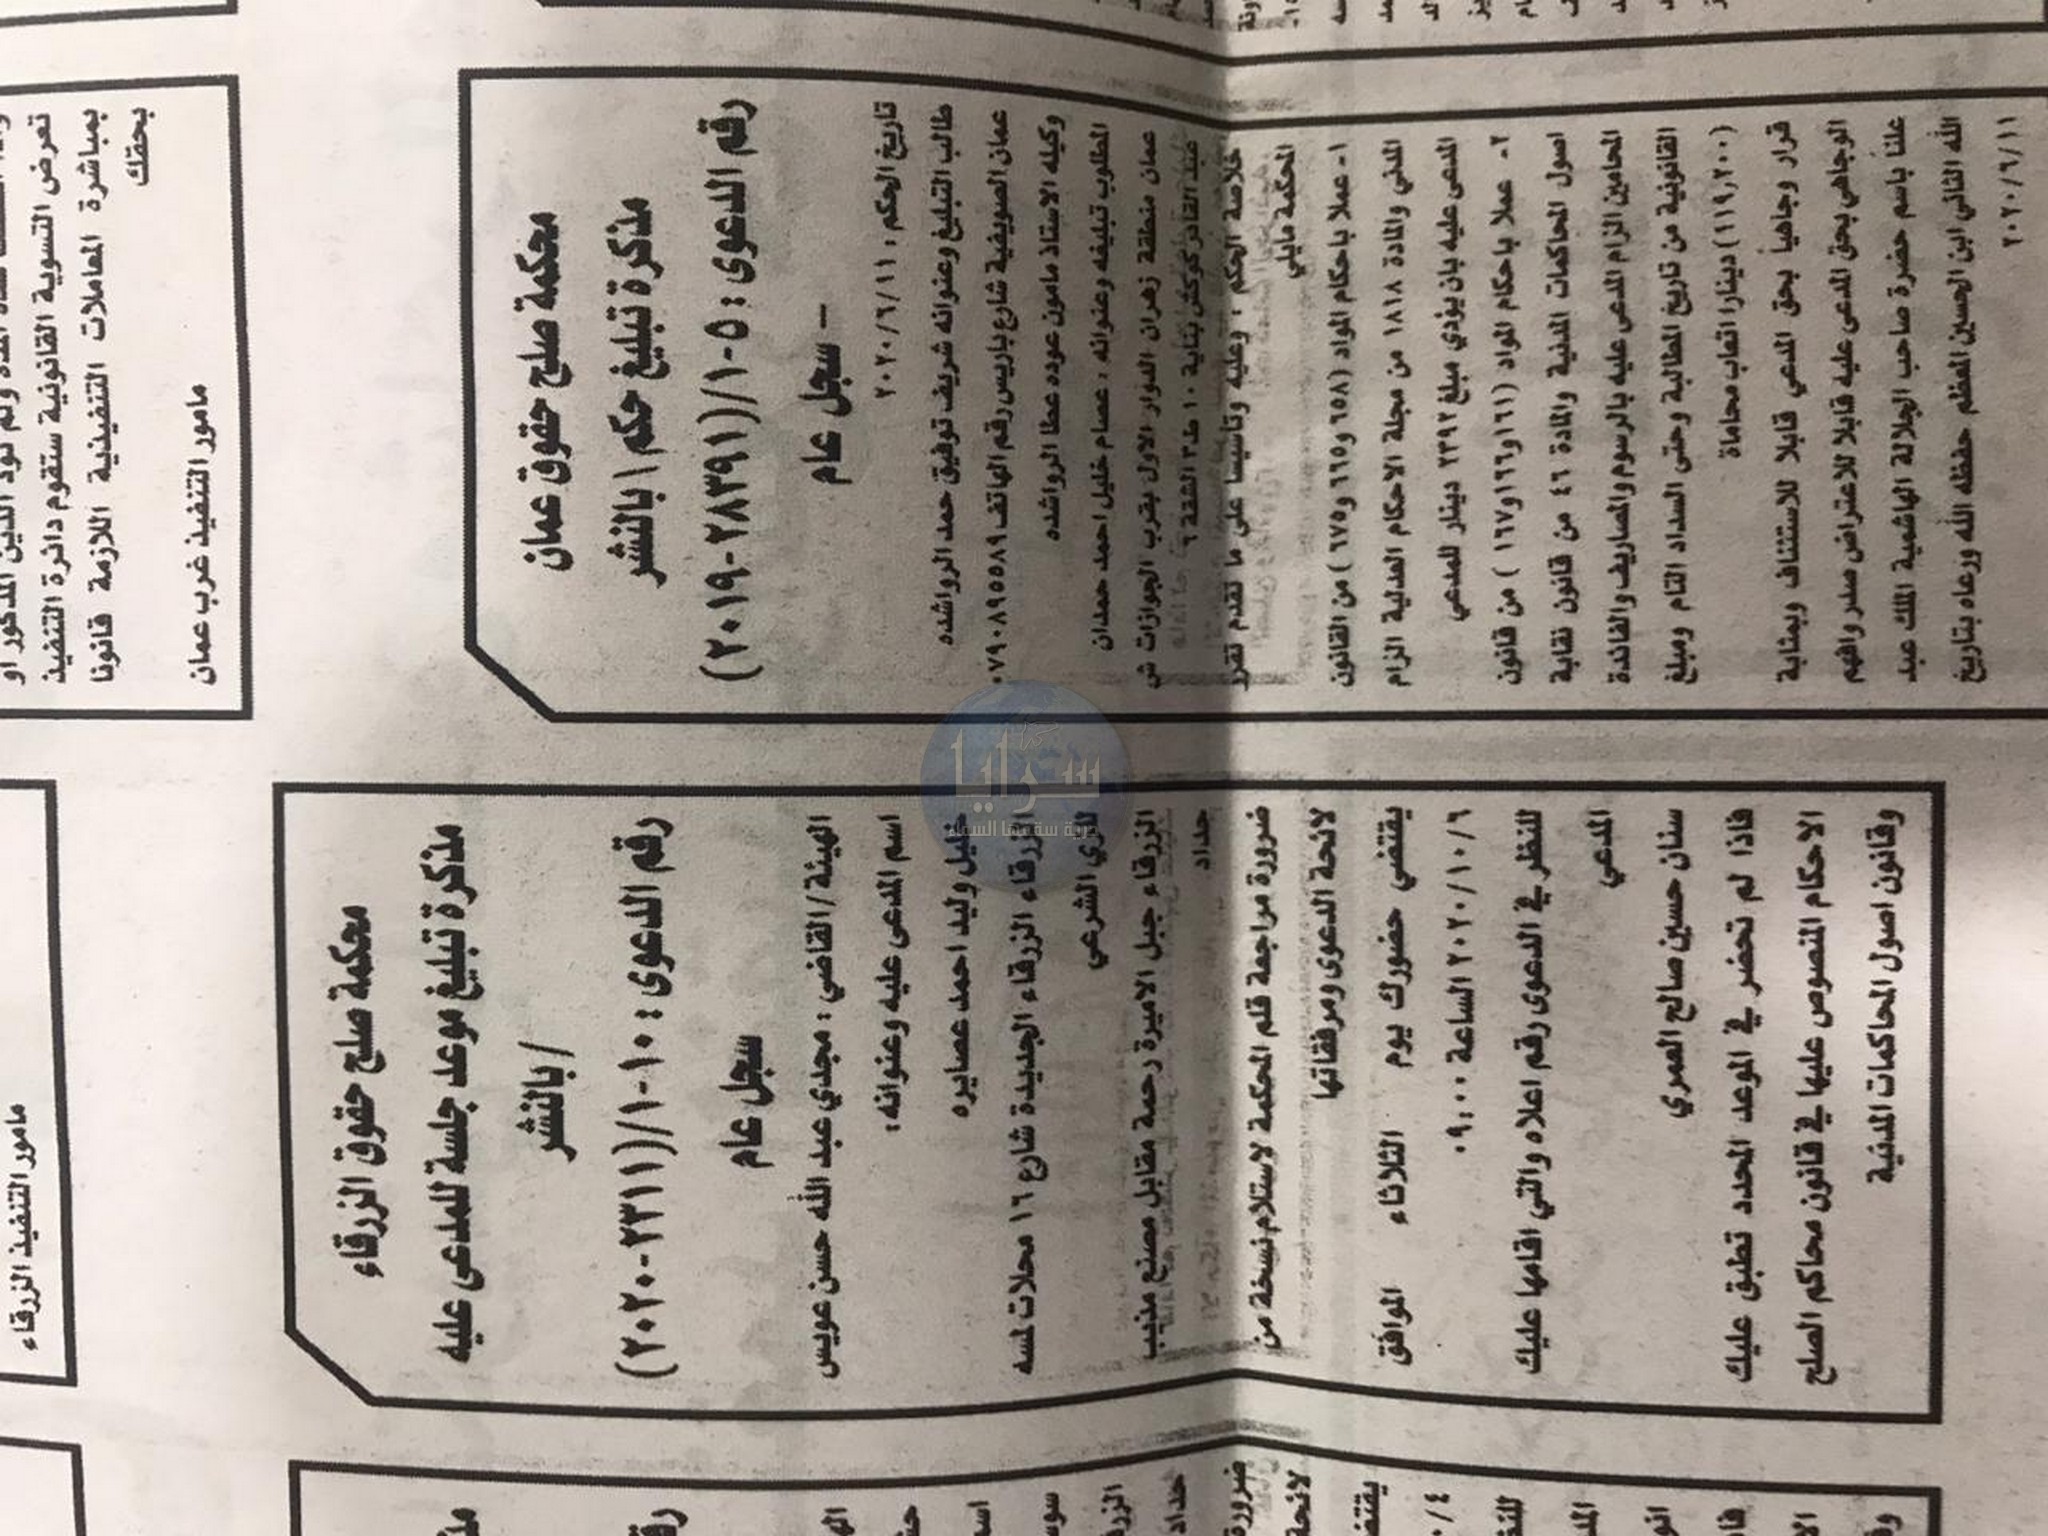 محكمة صلح حقوق عمان
مذكرة تبليغ حكم \ بالنشر
رقم الدعوى : ٥-١/(٢٨٣٩١-٢٠١٩)
– سجل عام
تاريخ الحكم : ٢٠٢٠/٦/١١
طالب التبليغ وعنوانه شريف توفيق حمد الرواشده
عمان الصويفية شارع باريس رقم الهاتف ٠٧٩٠٨٩٥٥٨٩
وكيله الاستاذ مامون عوده عطا الرواشده
المطلوب تبليغه وعنوانه : عصام خليل احمد حمدان
عمان منطقة زهران الدوار الاول بقرب الجوازات ش
عبد القادر كوشك بناية ١٠ ط٣ الشقة ٦
خلاصة الحكم : وعليه وتاسيسا على ما تقدم تقرر
المحكمة مايلي
١- عملا باحكام المواد (٦٥٨ و٦٦٥ و٦٧٥ ) من القانون
المدني والمادة ١٨١٨ من مجلة الاحكام العدلية الزام
المدعى عليه بان يؤدي مبلغ ٢٣٩٢ دينار للمدعي
٢- عملا باحكام المواد (١٦١ و١٦٦ و١٦٧ ) من قانون
اصول المحاكمات المدنية والمادة ٤٦ من قانون نقابة
المحامين الزام المدعى عليه بالرسوم والمصاريف والفائدة
القانونية من تاريخ المطالبة وحتى السداد التام ومبلغ
(١١٩,٢٠٠) دينارا اتعاب محاماة
قرار وجاهياً بحق المدعي قابلا للاستئناف وبمثابة
الوجاهي بحق المدعى عليه قابلا للاعتراض صدر وافهم
علناً باسم حضرة صاحب الجلالة الهاشمية الملك عبد
الله الثاني ابن الحسين المعظم حفظه الله ورعاه بتاريخ
٢٠٢٠/٦/١١
محكمة صلح حقوق الزرقاء
مذكرة تبليغ موعد جلسة للمدعى عليه
/ بالنشر
رقم الدعوى : ١٠-١/(٢٣١١-٢٠٢٠)
سجل عام
الهيئة / القاضي : مجدي عبد الله حسن عويس
اسم المدعى عليه وعنوانه:
خليل وليد احمد عصايره
الزرقاء الزرقاء الجديدة شارع ١٦ محلات لمسه
للزي الشرعي
الزرقاء جبل الاميرة رحمة مقابل مصنع مذيب
حداد
ضرورة مراجعة قلم المحكمة لاستلام نسخة من
لائحة الدعوى ومرفقاتها
يقتضي حضورك يوم الثلاثاء الموافق
٢٠٢٠/١٠/٦ الساعة ٠٩:٠٠
للنظر في الدعوى رقم اعلاه والتي اقامها عليك
المدعي
سنان حسين صالح العمري
فاذا لم تحضر في الموعد المحدد تطبق عليك
الاحكام المنصوص عليها في قانون محاكم الصلح
وقانون اصول المحاكمات المدنية
تعرض التسوية القانونية ستقوم دائرة التنفيذ
بمباشرة المعاملات التنفيذية اللازمة قانونا
بحقك
مامور التنفيذ غرب عمان
مامور التنفيذ الزرقاء
سرايا
حرية سقفها السماء